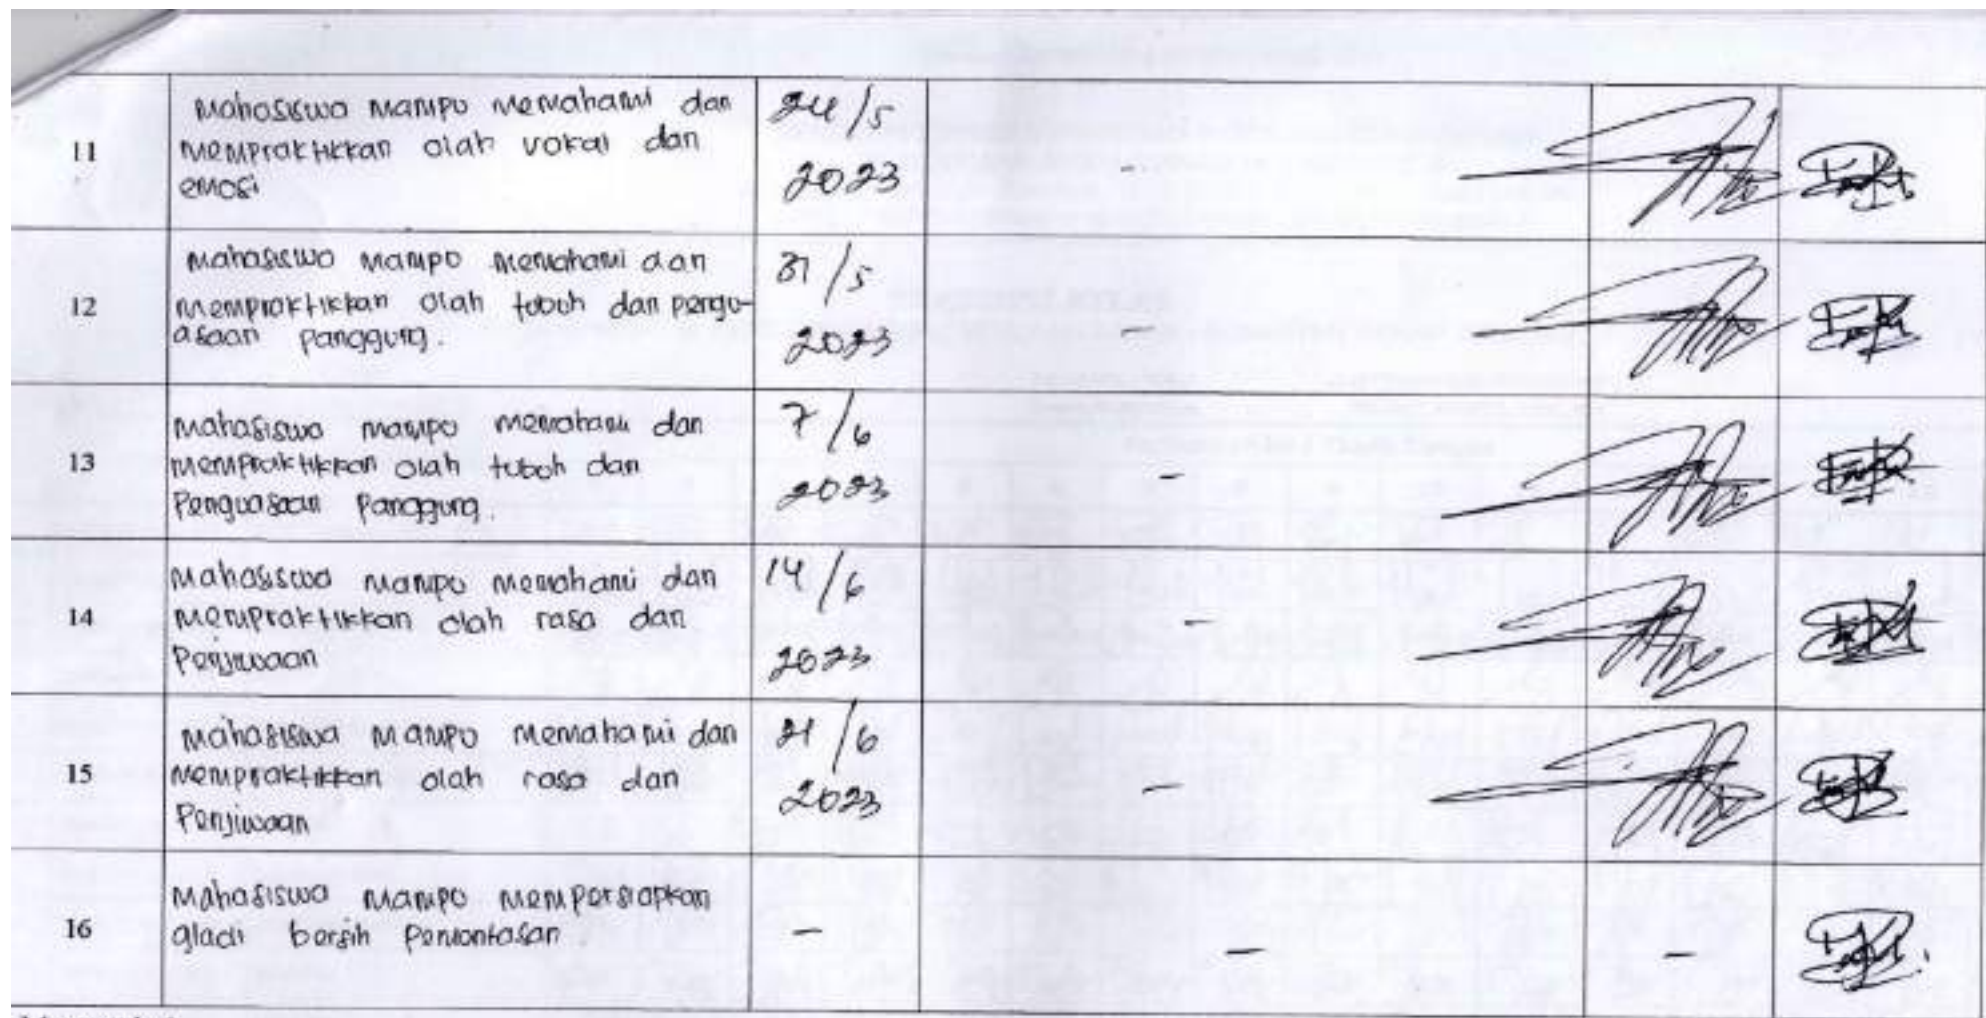 11
Mahasiswa mampu memahami dan
mempraktikkan olah vokal dan
emosi
24/5
2023
-
12
Mahasiswa mampu memahami dan
mempraktikkan olah tubuh dan pengu-
asaan panggung.
31/5
2023
-
13
Mahasiswa mampu memahami dan
mempraktikkan olah tubuh dan
Penguasaan Panggung.
7/6
2023
-
14
Mahasiswa mampu memahami dan
mempraktikkan olah rasa dan
Penjiwaan
14/6
2023
-
15
Mahasiswa mampu memahami dan
mempraktikkan olah rasa dan
Penjiwaan
21/6
2023
-
16
Mahasiswa mampu mempersiapkan
gladi bersih pementasan
-
-
-